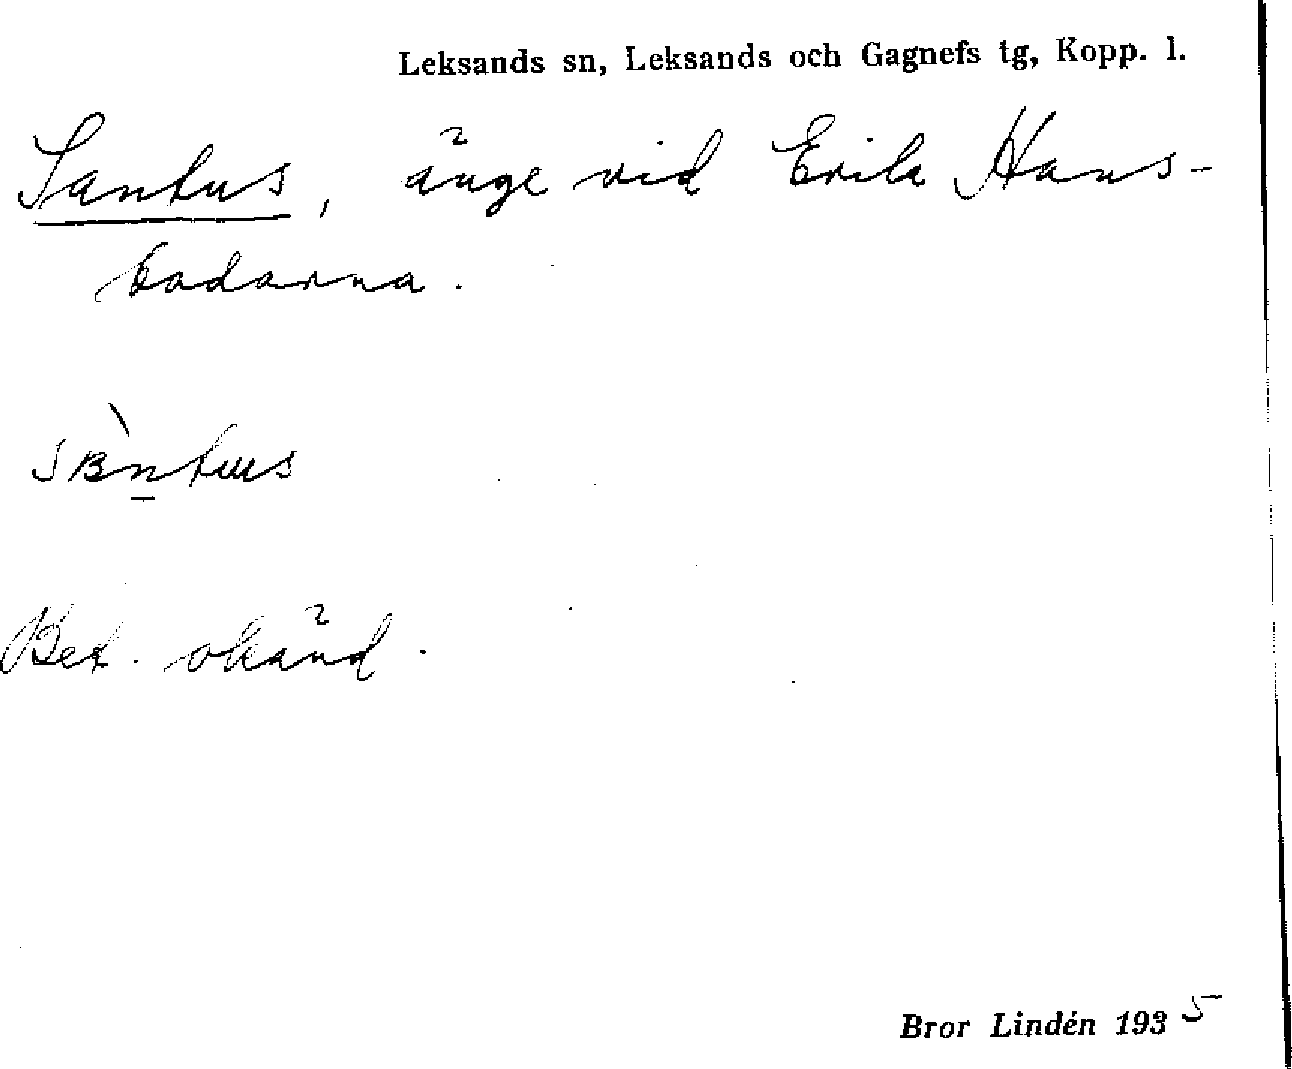 Leksands sn, Leksands och Gagnefs tg, Kopp. l.
Santus, änge vid Erik Hans-
bodarna.
sʙ̀n̲tɯs
Bet. okänd.
Bror Lindén 1935